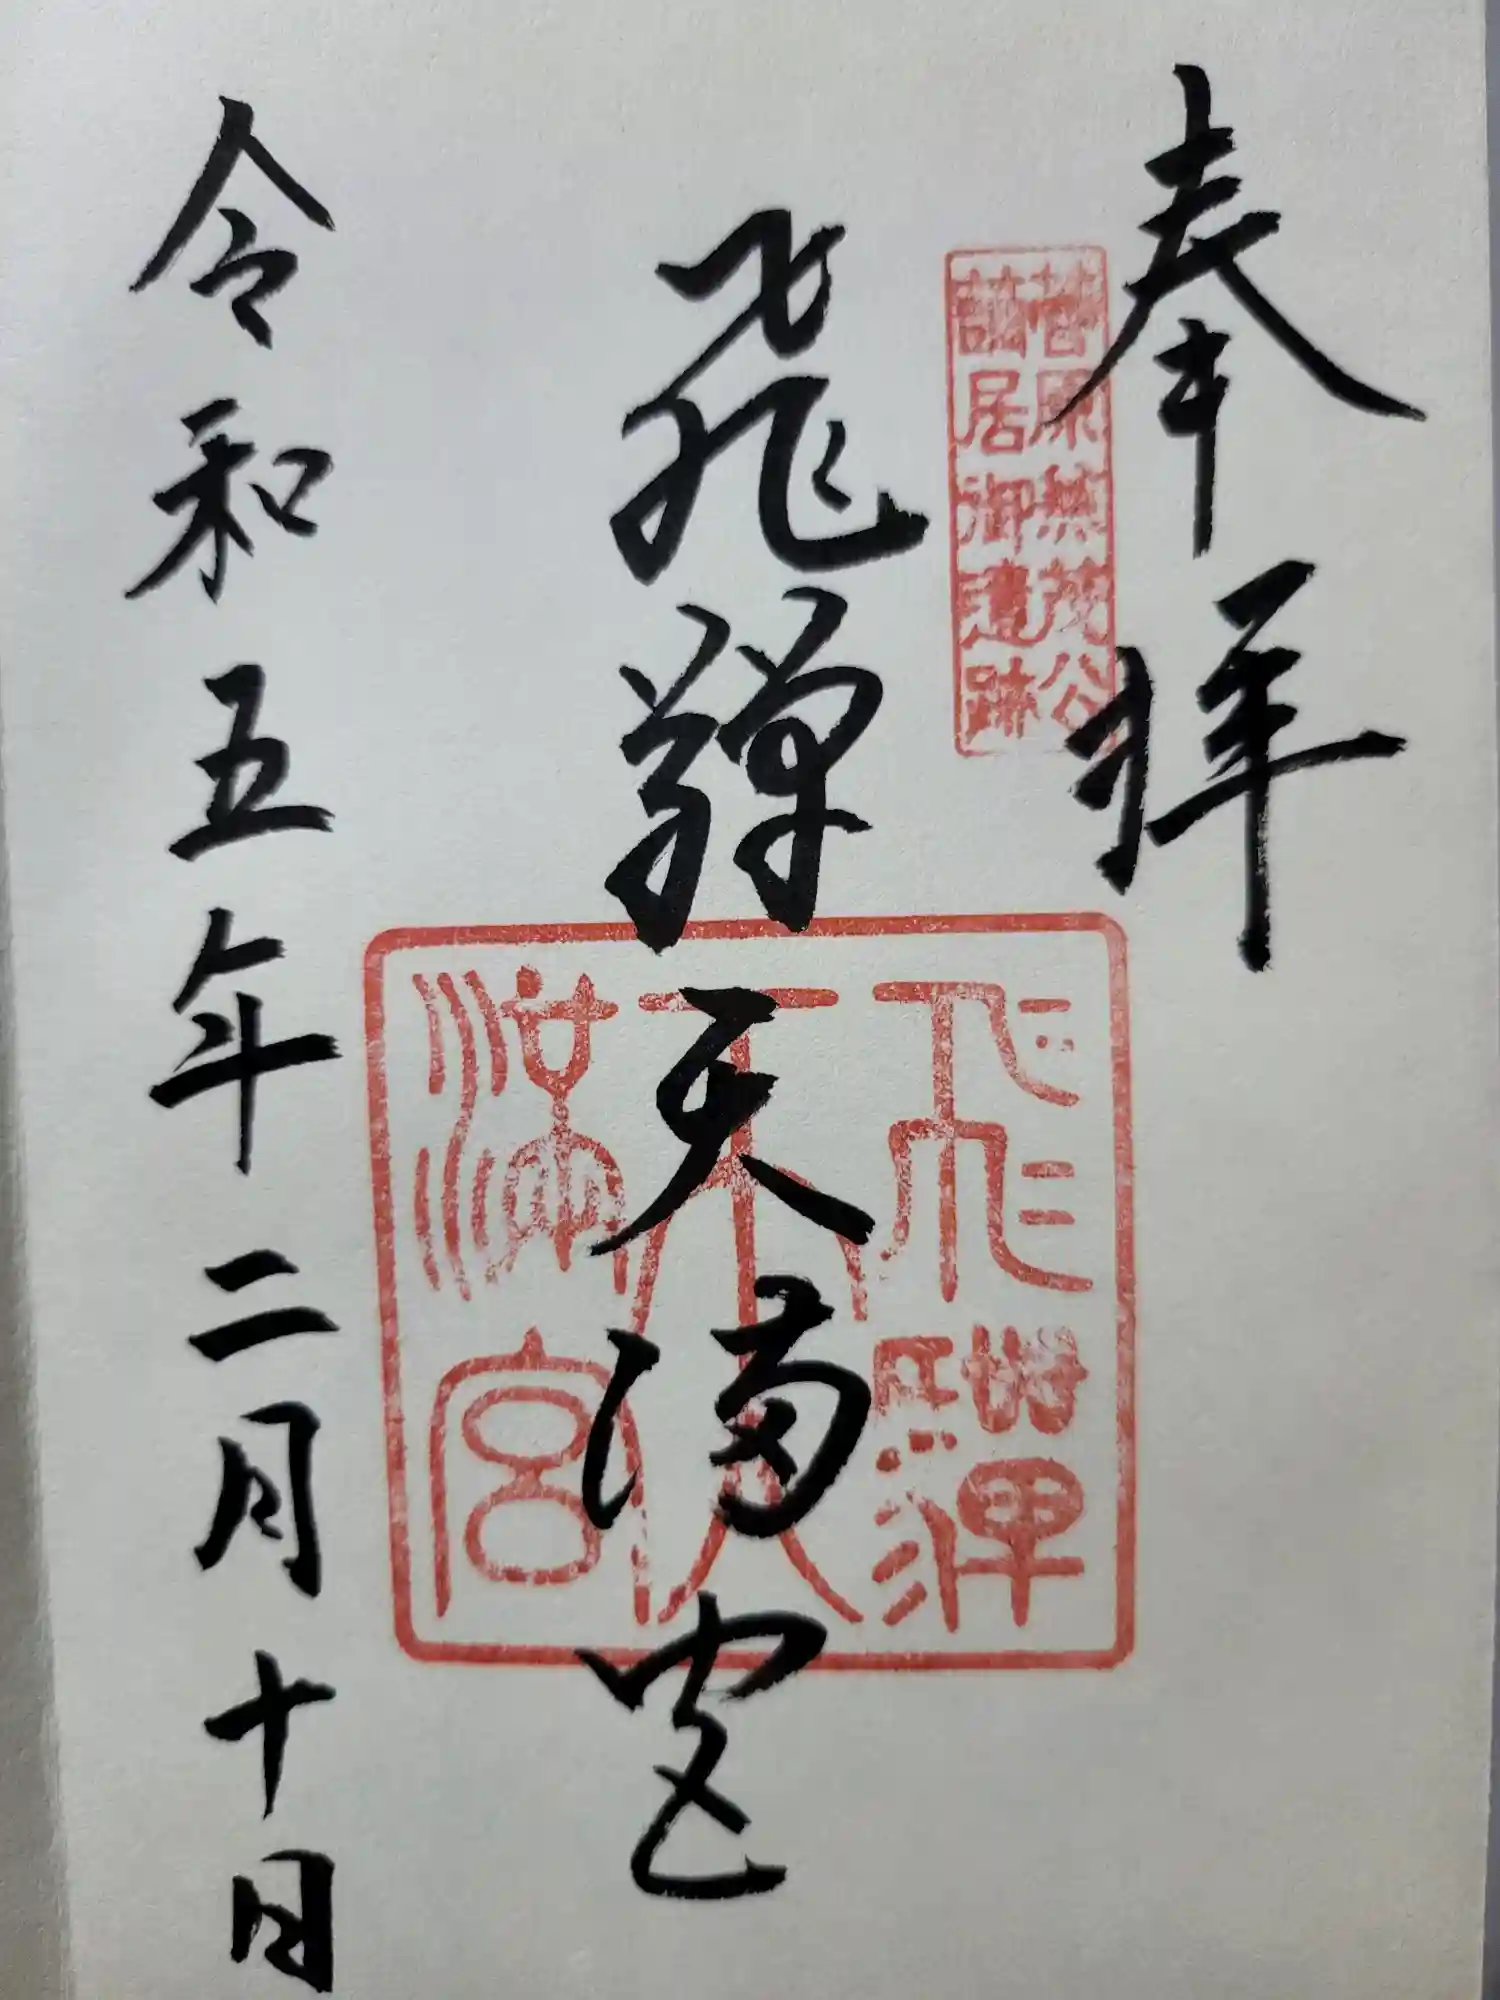 奉拝
菅原兼茂公
謫居御遺跡
飛驒天満宮
飛驒
天
満宮
令和五年二月十日